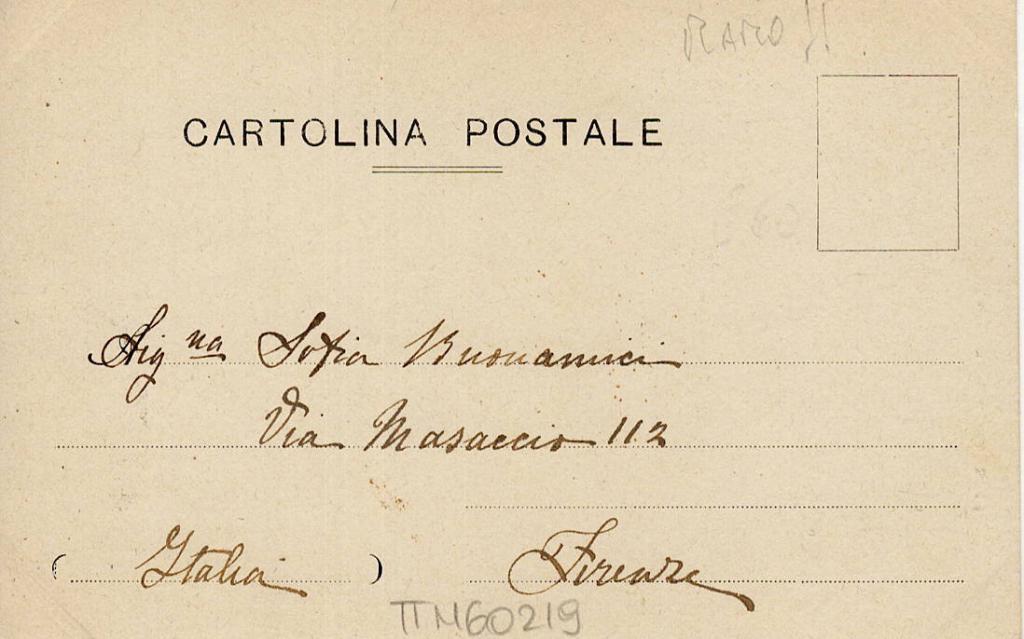 CARTOLINA POSTALE
Sig na Sofia Buonamici
Via Masaccio 112
( Italia ) Firenze
ПM60219